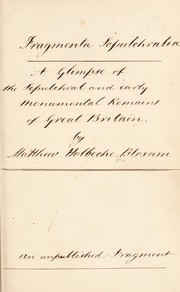 Fragmenta Sepulchralia
A Glimpse of
the Sepulchral and early
Monumental Remains
of Great Britain.
by
Matthew Holbeche Bloxam
An unpublished Fragment